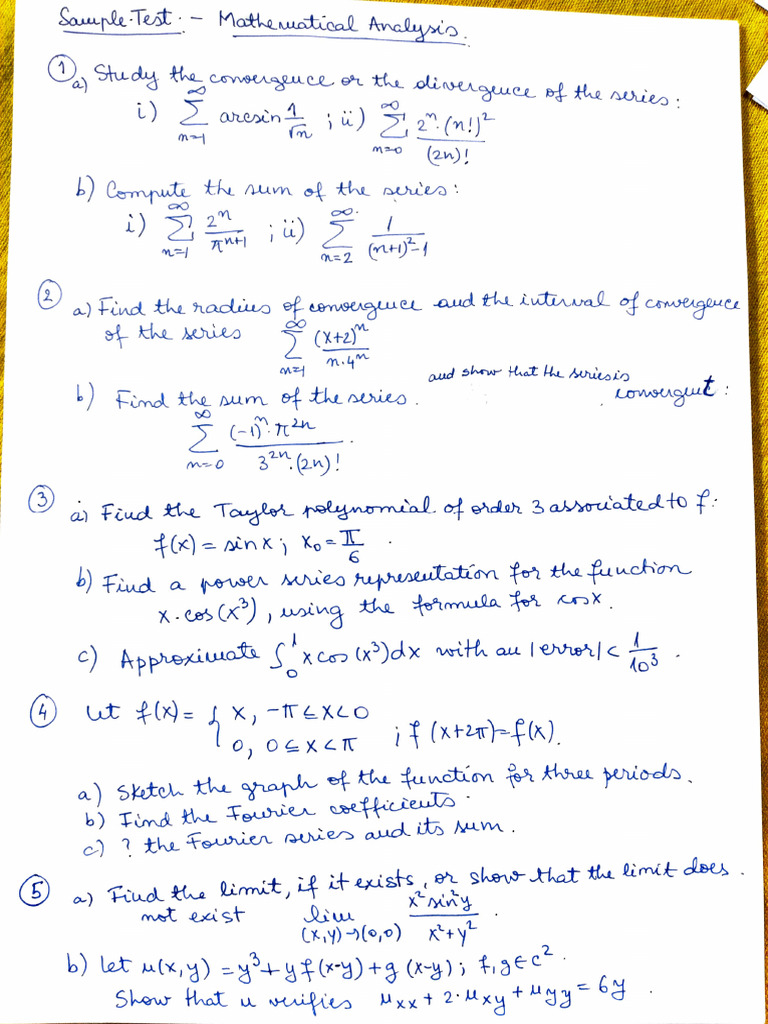 Sample Test. - Mathematical Analysis.
① a) Study the convergence or the divergence of the series:
i) ∑_{n=1}^{∞} arcsin 1/√n ; ii) ∑_{n=0}^{∞} 2^n·(n!)^2/(2n)!
b) Compute the sum of the series:
i) ∑_{n=1}^{∞} 2^n/π^{n+1} ; ii) ∑_{n=2}^{∞} 1/((n+1)^2-1)
② a) Find the radius of convergence and the interval of convergence
of the series ∑_{n=1}^{∞} (x+2)^n/(n·4^n)
b) Find the sum of the series and show that the series is convergent:
∑_{n=0}^{∞} (-1)^n·π^{2n}/(3^{2n}·(2n)!).
③ a) Find the Taylor polynomial of order 3 associated to f:
f(x) = sin x; x₀ = π/6.
b) Find a power series representation for the function
x·cos(x³), using the formula for cos x.
c) Approximate ∫_0^1 x cos(x³)dx with an |error| < 1/10³.
④ Let f(x) = { x, -π≤x<0
0, 0≤x<π ; f(x+2π)=f(x).
a) Sketch the graph of the function for three periods.
b) Find the Fourier coefficients.
c) ? the Fourier series and its sum.
⑤ a) Find the limit, if it exists, or show that the limit does
not exist lim_{(x,y)→(0,0)} x² sin²y/(x²+y²).
b) Let u(x,y) = y³+yf(x-y)+g(x-y); f,g∈C².
Show that u verifies u_xx + 2·u_xy + u_yy = 6y.